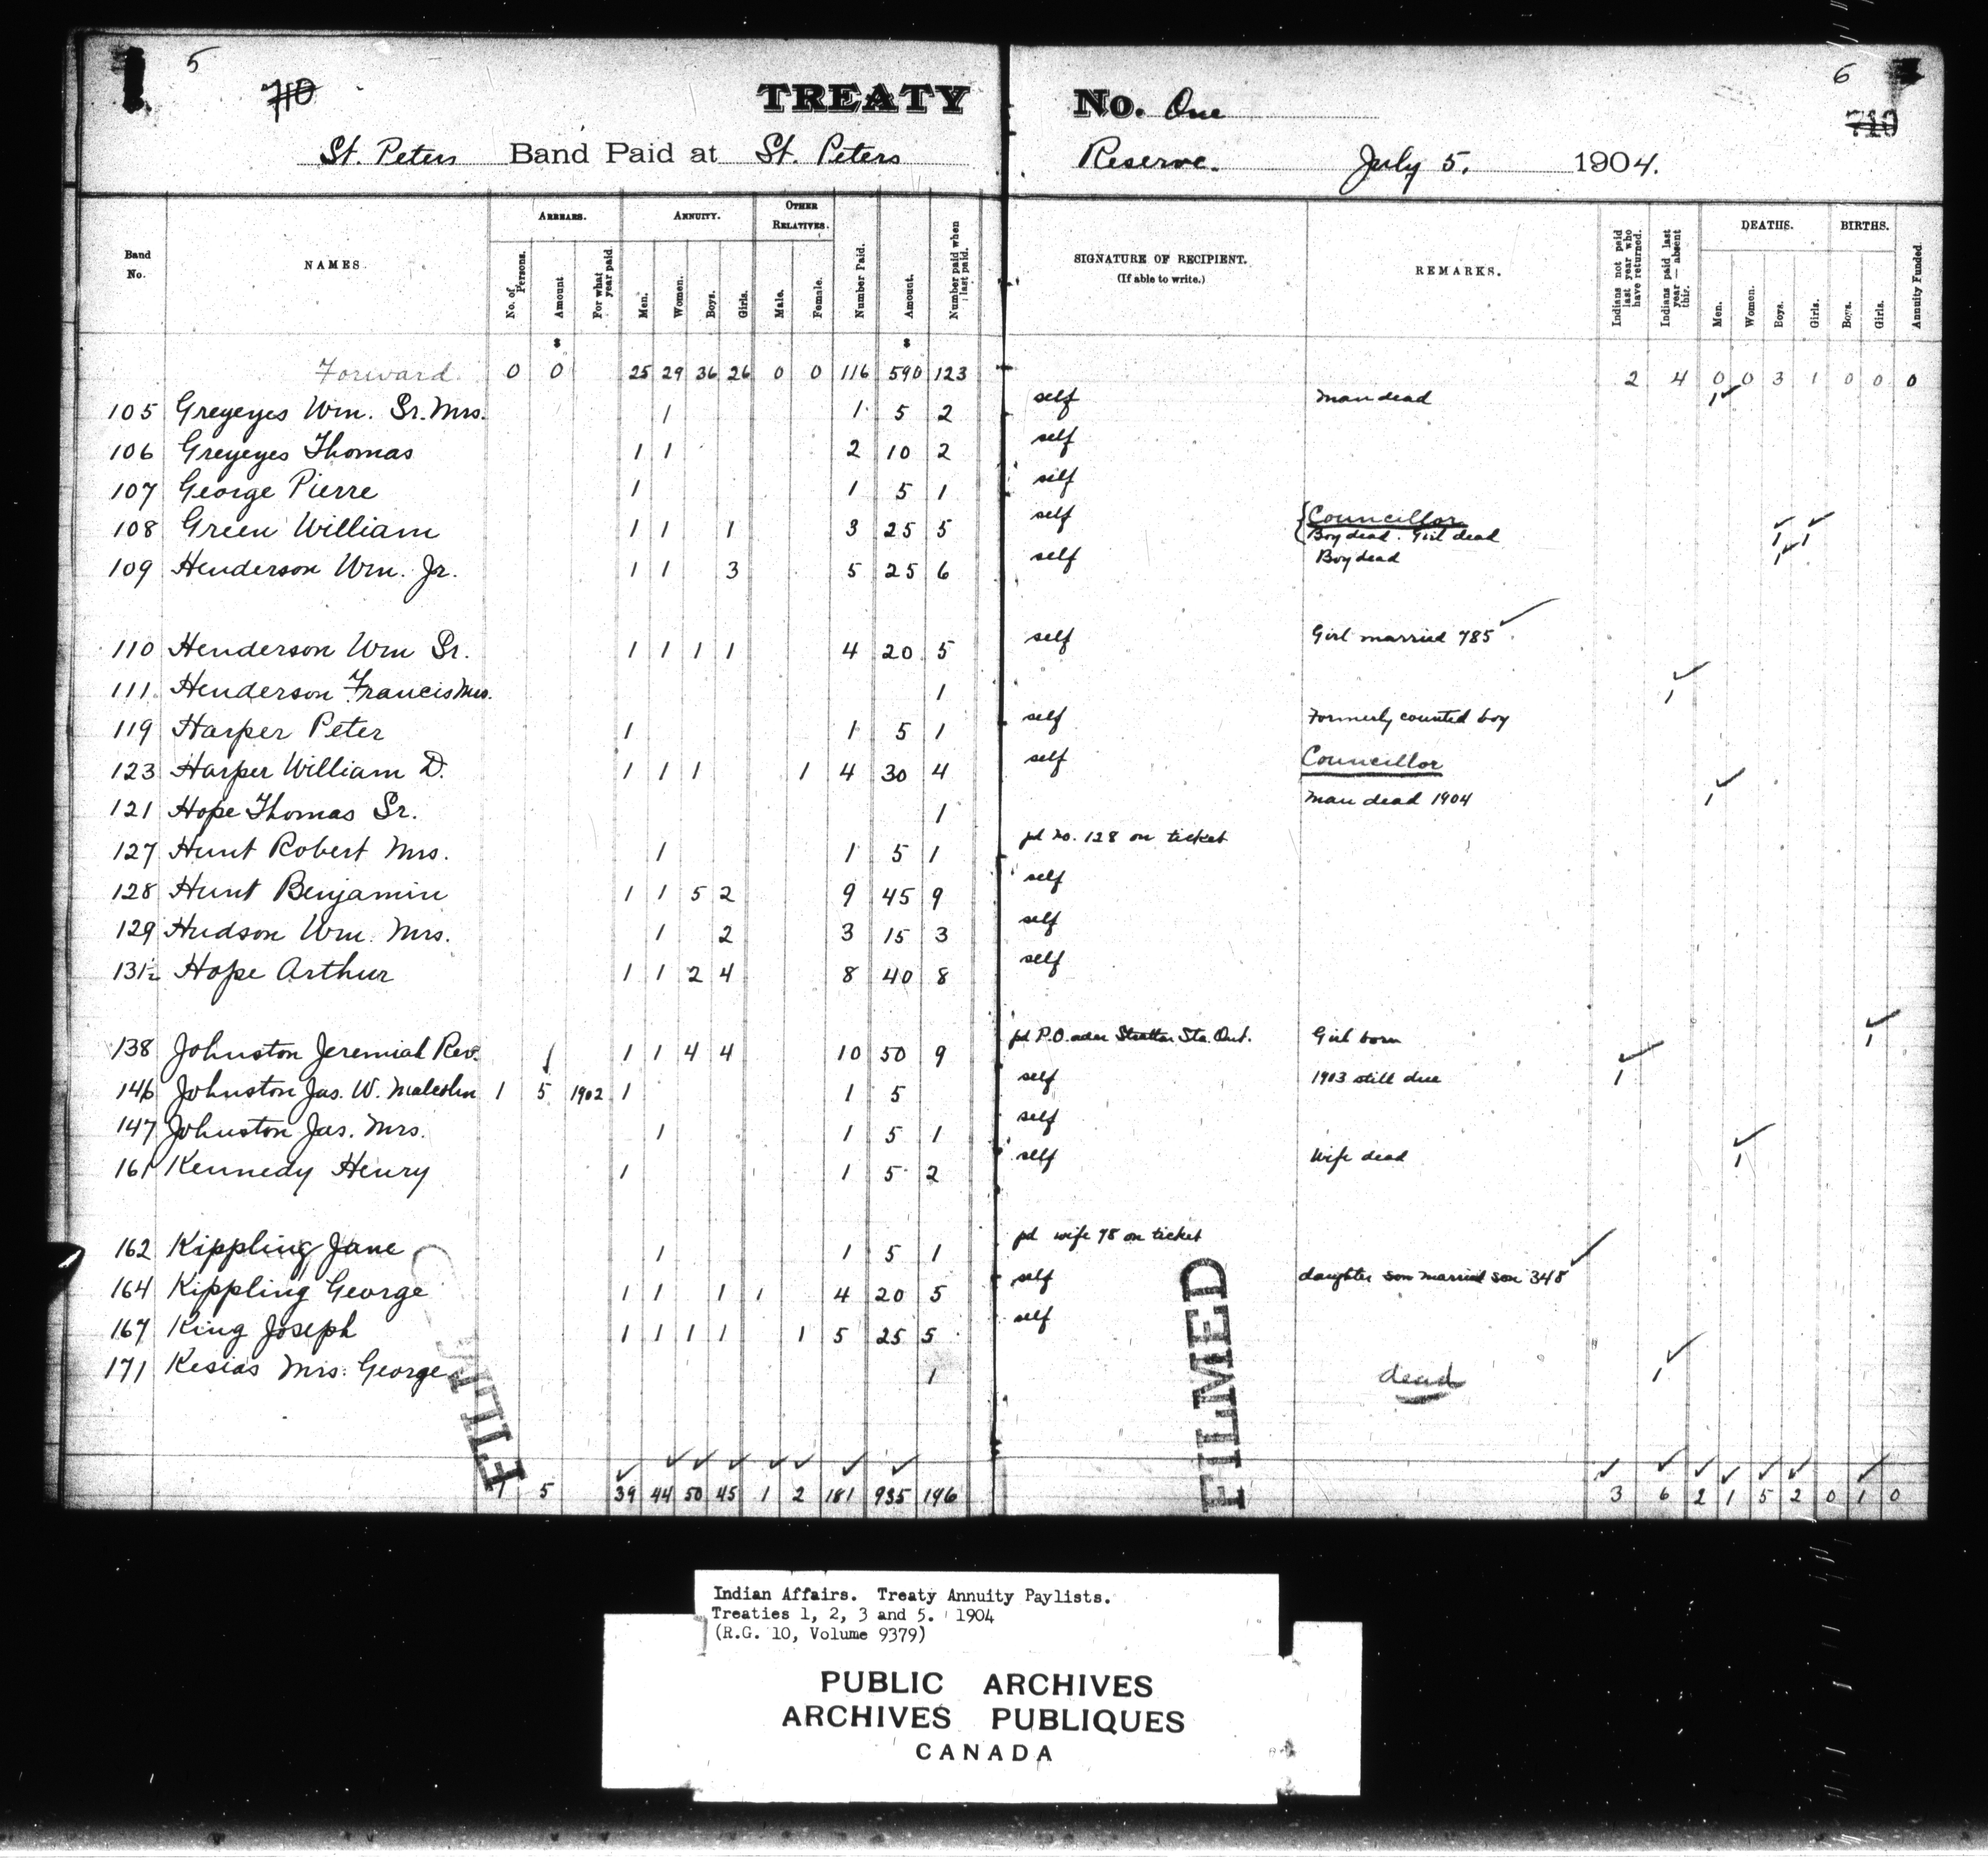 5
710
TREATY No. One
6
710
St. Peters Band Paid at St. Peters Reserve. July 5, 1904.
Band No. NAMES. ARREARS. No. of Persons. Amount For what year paid ANNUITY. Men. Women. Boys. Girls. OTHER RELATIVES. Male. Female. Number Paid. Amount. Number paid when last paid. SIGNATURE OF RECIPIENT. (If able to write.) REMARKS. Indians not paid last year who have returned. Indians paid last year — absent this. DEATHS. Men. Women. Boys. Girls. BIRTHS. Boys. Girls. Annuity Funded.
$ $
Forward 0 0 25 29 36 26 0 0 116 590 123 2 4 0 0 3 1 0 0 0
105 Greyeyes Wm. Sr. Mrs. 1 1 5 2 self Man dead 1
106 Greyeyes Thomas 1 1 2 10 2 self
107 George Pierre 1 1 5 1 self
108 Green William 1 1 1 3 25 5 self Councillor Boy dead. Girl dead 1 1
109 Henderson Wm. Jr. 1 1 3 5 25 6 self Boy dead 1
110 Henderson Wm Sr. 1 1 1 1 4 20 5 self Girl married 785
111 Henderson Francis Mrs. 1 1
119 Harper Peter 1 1 5 1 self Formerly counted boy
123 Harper William D. 1 1 1 1 4 30 4 self Councillor
121 Hope Thomas Sr. 1 Man dead 1904 1
127 Hunt Robert Mrs. 1 1 5 1 pd no. 128 on ticket
128 Hunt Benjamin 1 1 5 2 9 45 9 self
129 Hudson Wm. Mrs. 1 2 3 15 3 self
131½ Hope Arthur 1 1 2 4 8 40 8 self
138 Johnston Jeremiah Rev. 1 1 4 4 10 50 9 pd P.O. ader Stratton Sta. Ont. Girl born 1
146 Johnston Jas. W. Malcolm 1 5 1902 1 1 5 self 1903 still due 1
147 Johnston Jas. Mrs. 1 1 5 1 self
161 Kennedy Henry 1 1 5 2 self Wife dead 1
162 Kippling Jane 1 1 5 1 pd wife 78 on ticket
164 Kippling George 1 1 1 1 4 20 5 self daughter son married son 348
167 King Joseph 1 1 1 1 1 5 25 5 self
171 Kesias Mrs. George 1 dead 1
FILMED
FILMED
1 5 39 44 50 45 1 2 181 935 196 3 6 2 1 5 2 0 1 0
Indian Affairs. Treaty Annuity Paylists.
Treaties 1, 2, 3 and 5. 1904
(R.G. 10, Volume 9379)
PUBLIC ARCHIVES
ARCHIVES PUBLIQUES
CANADA